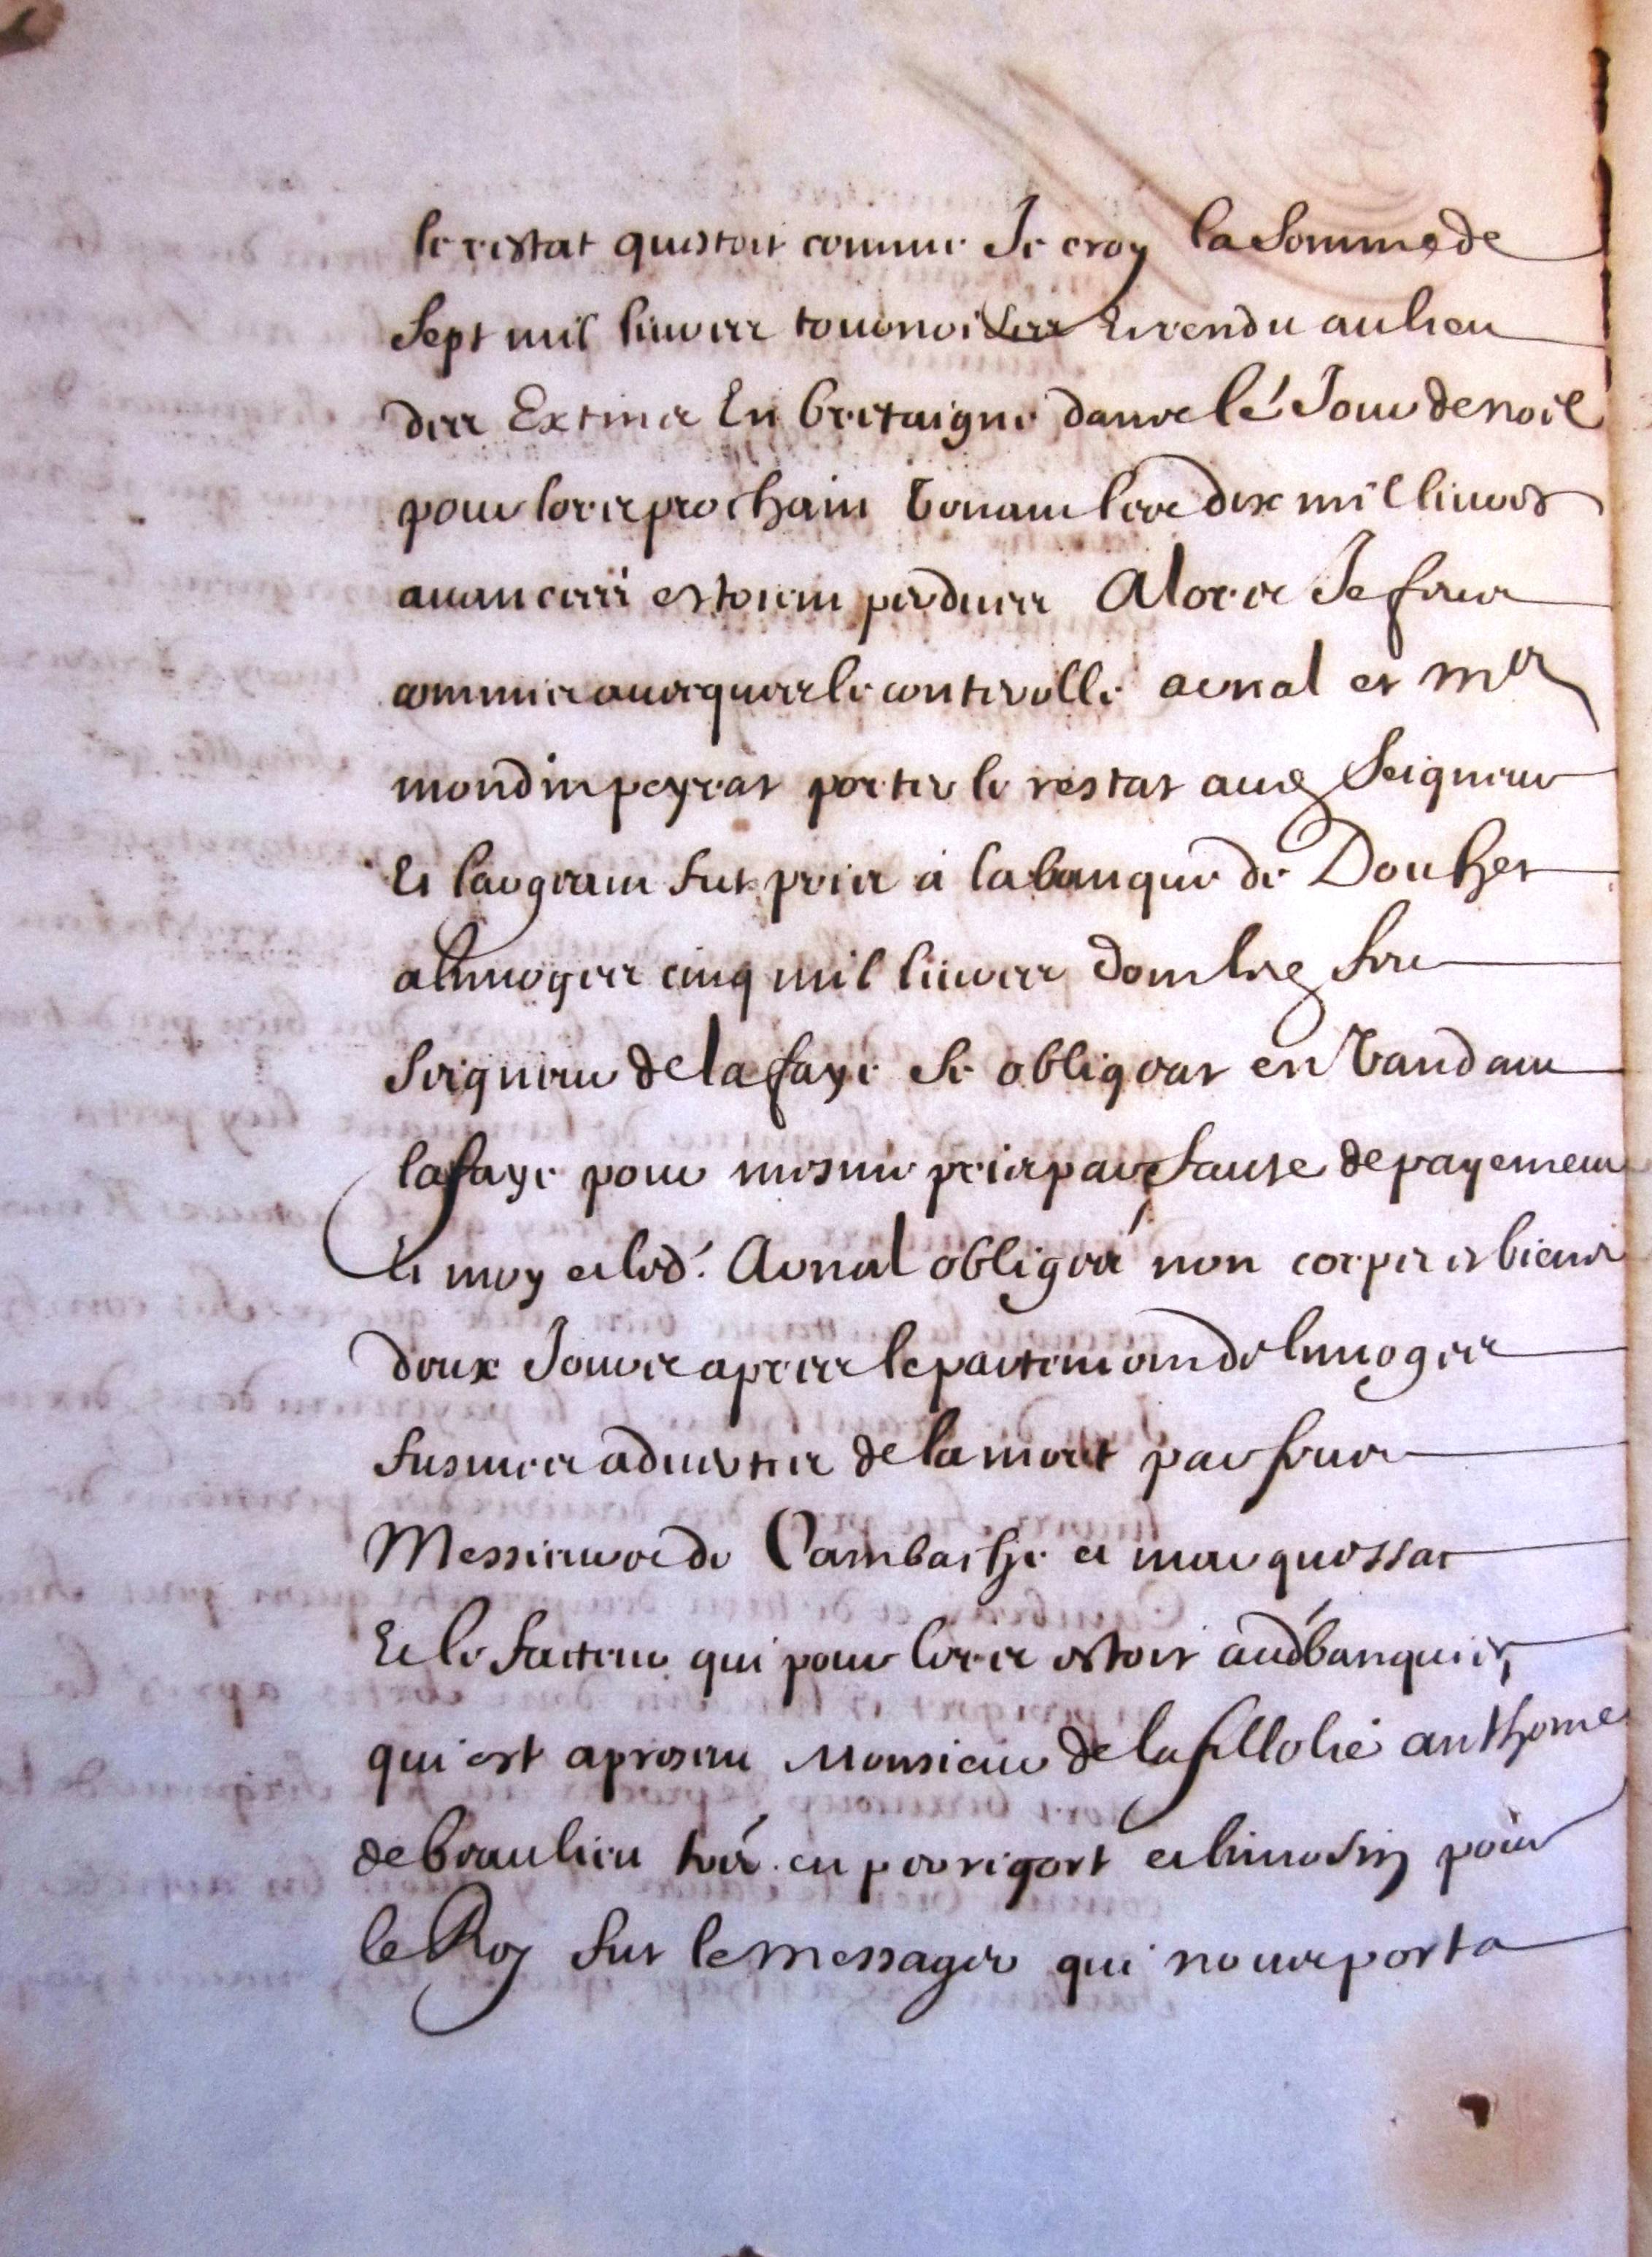 le restat questoit comme Je croy la Somme de
Sept mil livres tournoises Et rendu au lieu
des Extines En bretaigne dans le Jour de noel
pour lors prochain Venant les dix mil livres
avancees estoient perdues Alors Je feus
commis avecques le contrerolle arnal et Mes
mondin peyrat porter le restat aud Seigneur
Et l'argent fut pris a la banque de Douhet
a limoges cinq mil livres dont led feu
Seigneur de lafaye Se obligeat en Vandant
lafaye pour mesme pris par faute de payement
Et moy et led. Arnal obliges non corps et biens
deux Jours apres le partement de limoges
fusmes advertis de la mort par feus
Messieurs de Cambache et marquessat
Et le facteur qui pour lors estoit aud banquier
qui est apresent Monsieur de la fillolie anthoine
de beaulieu en perrigort et limosin pour
le Roy fut le messager qui nous porta